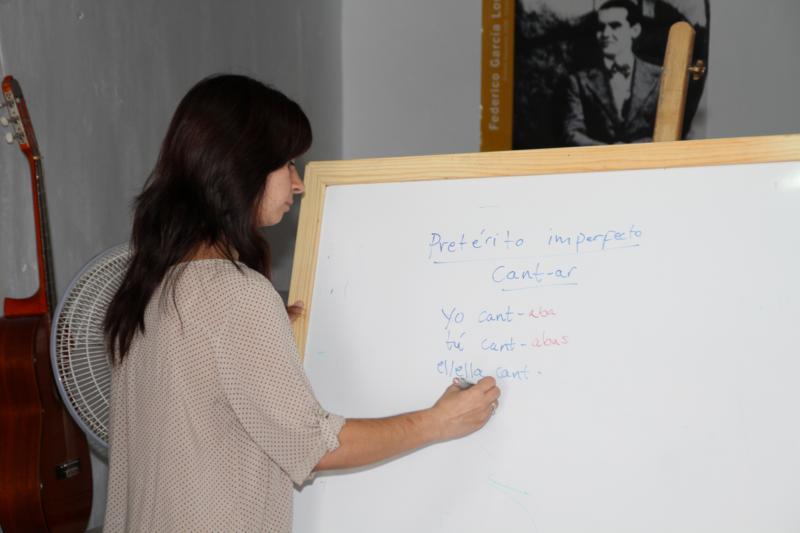 Federico García Lor
Pretérito imperfecto
Cant-ar
Yo cant-aba
tú cant-abas
el/ella cant-